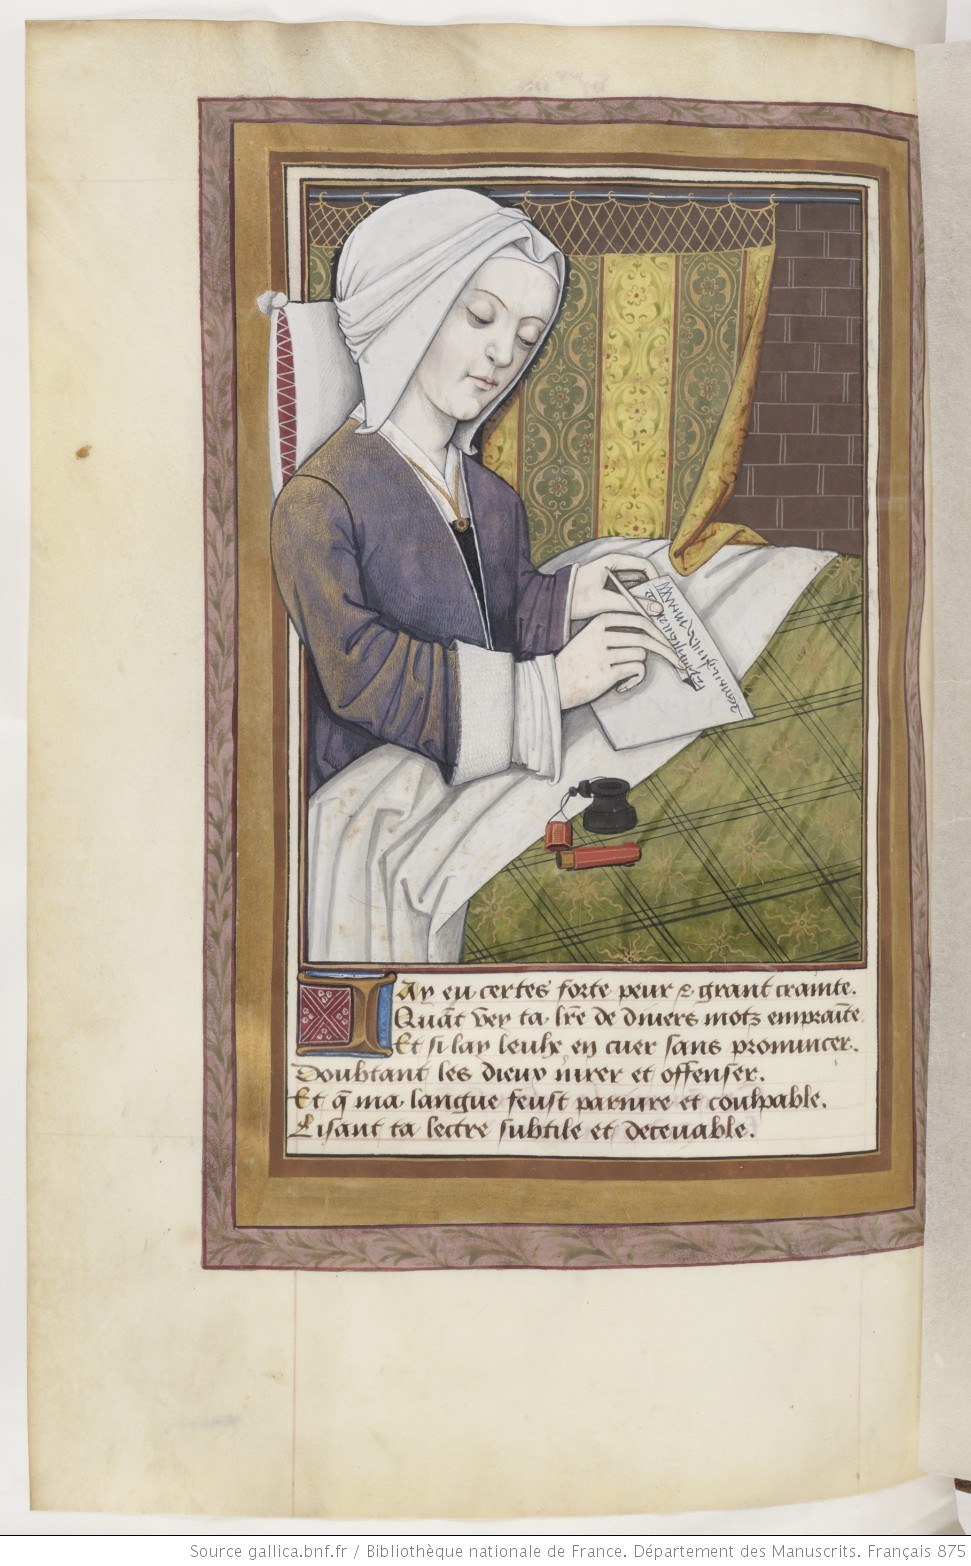 I Ay eu certes forte peur & grant crainte.
Quāt vey ta lr̄e de diuers motz empraīte.
Et si lay leuhe en cuer sans pronuncer.
Doubtant les dieux iurer et offenser.
Et q̄ ma langue feust pariure et coulpable.
Lisant ta lectre subtile et deceuable.
Source gallica.bnf.fr / Bibliothèque nationale de France. Département des Manuscrits. Français 875